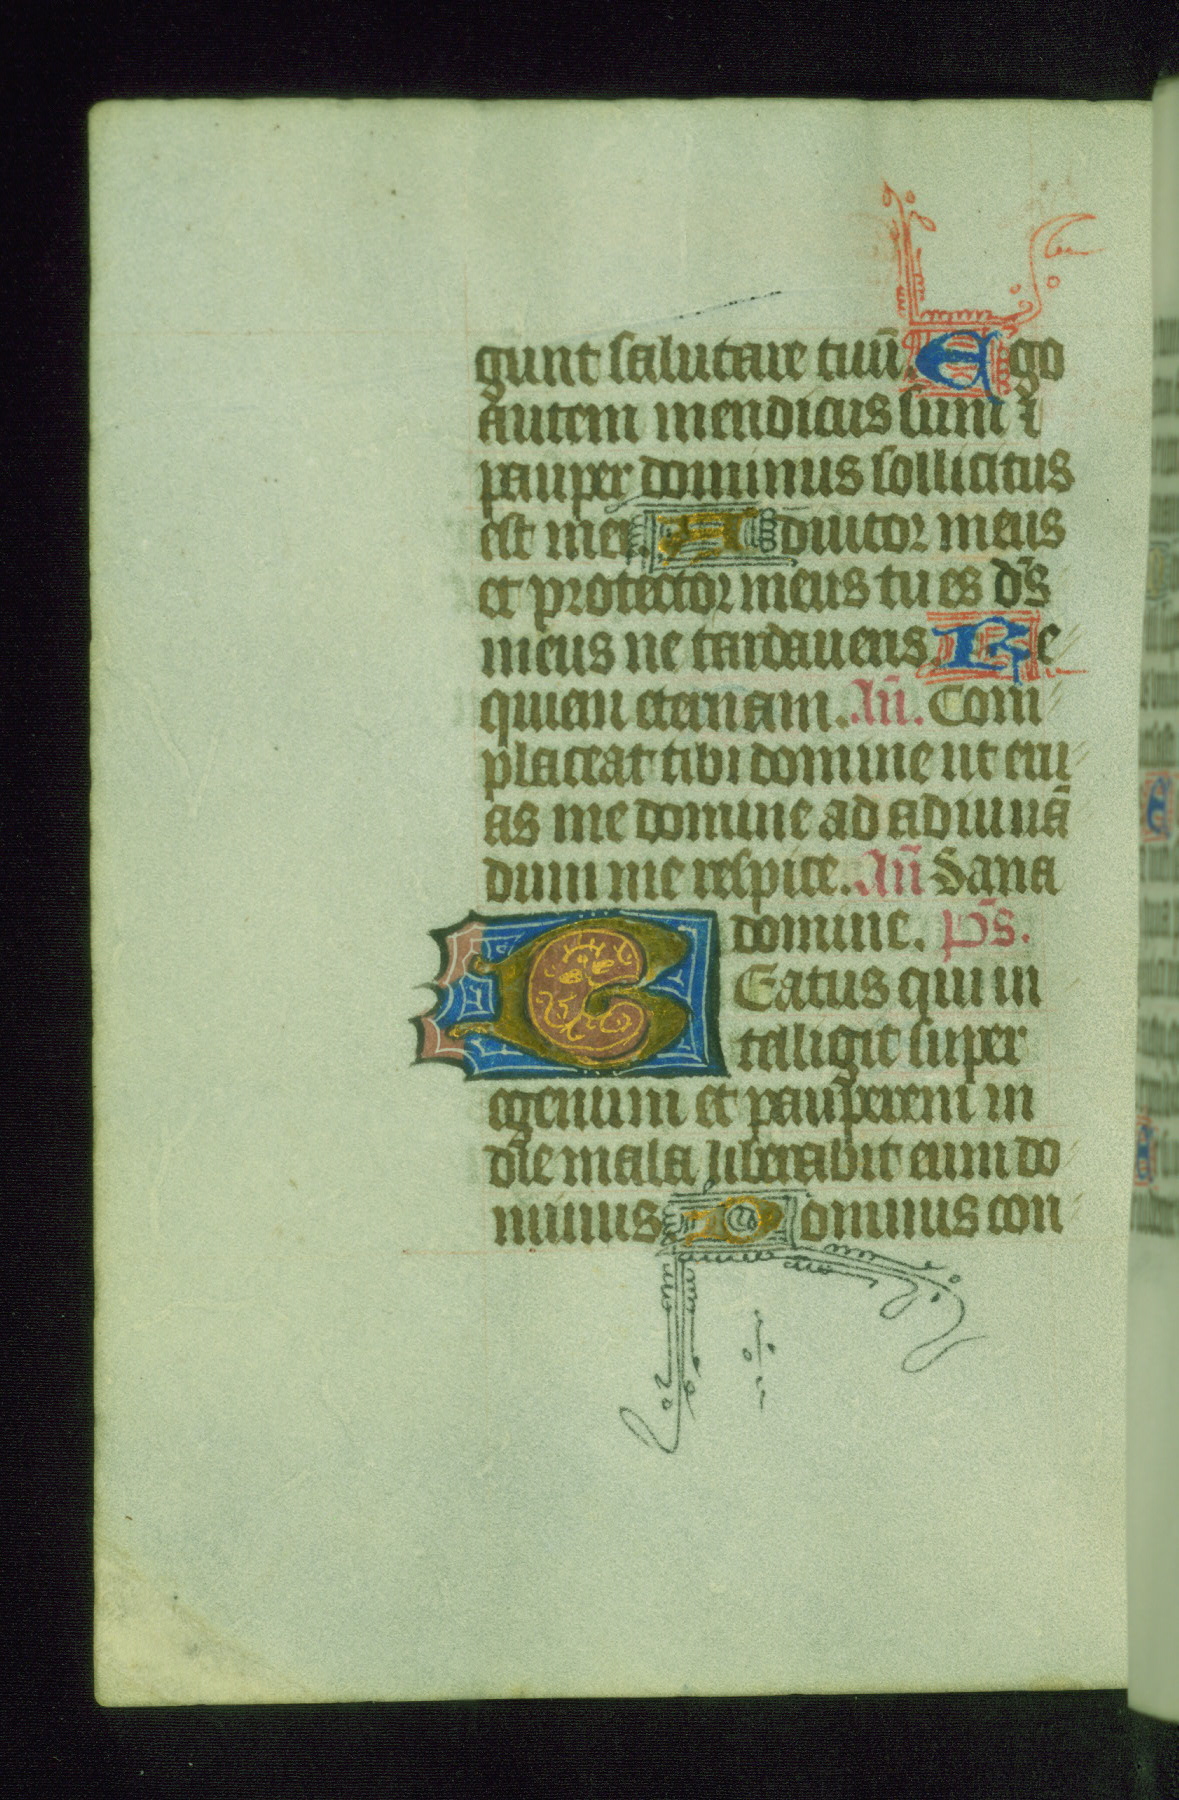 gunt salutare tuū. Ego
autem mendicus sum ⁊
pauper dominus sollicitus
est mei. Adiutor meus
et protector meus tu es dn̄s
meus ne tardaueris. Re
quiem eternam. An̄. Com
placeat tibi domine ut erii
as me domine ad adiuuā
dum me respice. An̄ Sana
domine. Ps̄.
Eatus qui in
telligit super
egenum et pauperem in
die mala liberabit eum do
minus Dominus con